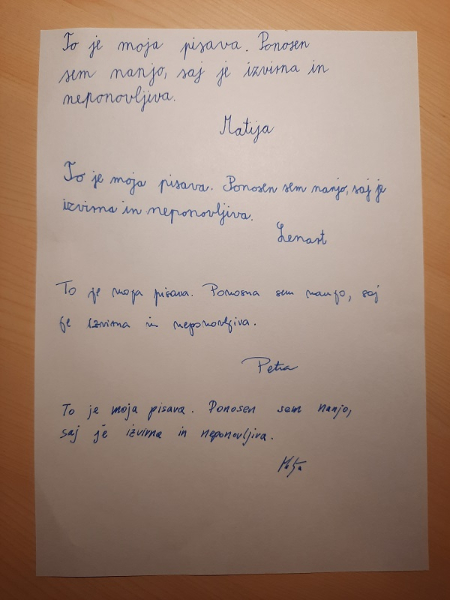 To je moja pisava. Ponosen
sem nanjo, saj je izvirna in
neponovljiva.
Matija
To je moja pisava. Ponosen sem nanjo, saj je
izvirna in neponovljiva.
Lenart
To je moja pisava. Ponosna sem nanjo, saj
je izvirna in neponovljiva.
Petra
To je moja pisava. Ponosen sem nanjo,
saj je izvirna in neponovljiva.